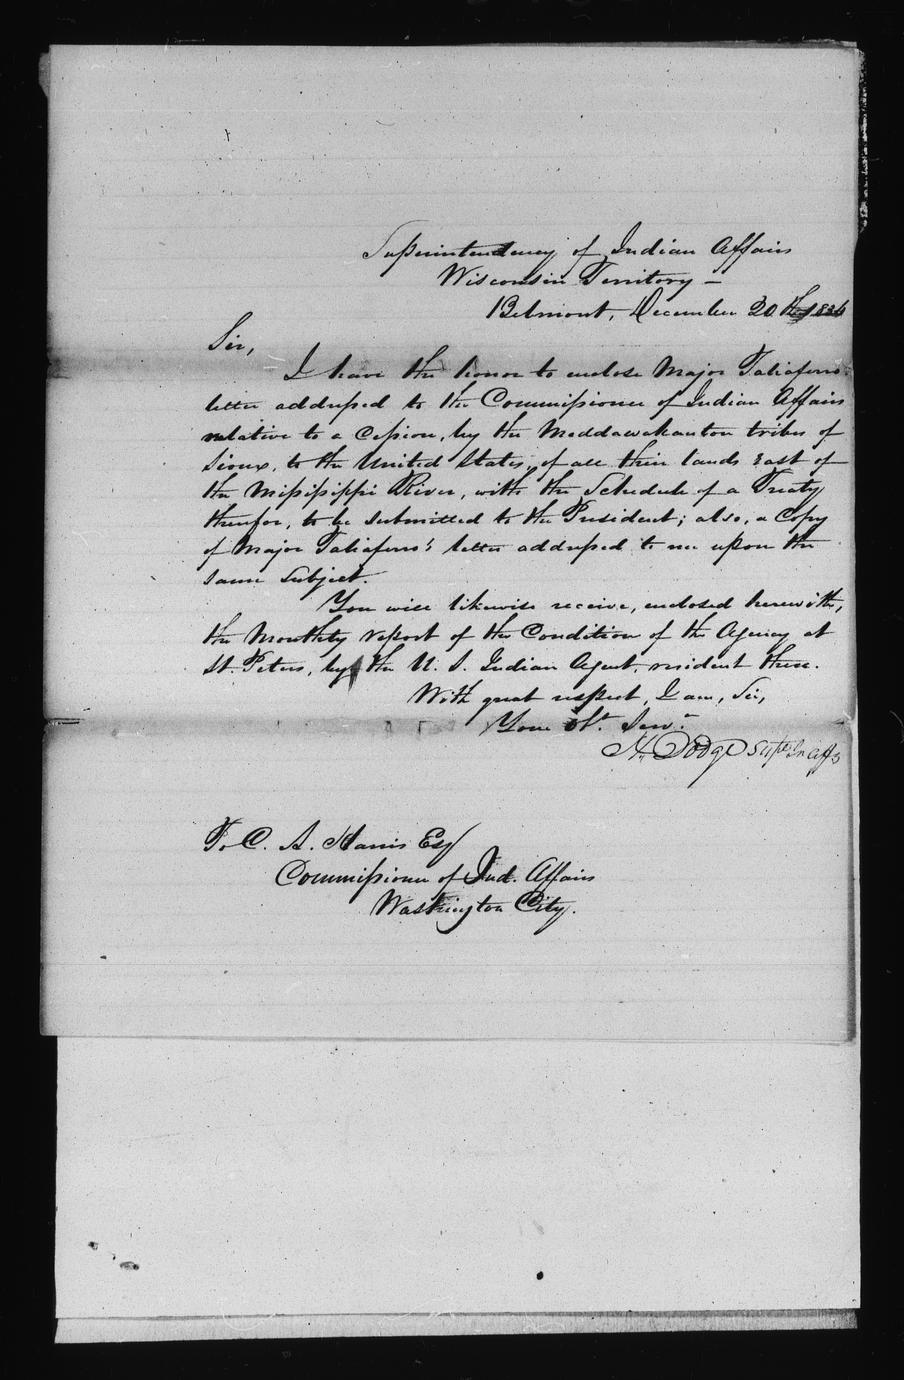 Superintendency of Indian Affairs
Wisconsin Territory –
Belmont, December 20th 1836
Sir,
I have the honor to enclose Major Taliaferro's
letter addressed to the Commissioner of Indian Affairs
relative to a Cession, by the Meddawakanton tribes of
Sioux, to the United States, of all their lands East of
the Mississippi River, with the Schedule of a Treaty
therefor, to be submitted to the President; also, a Copy
of Major Taliaferro's letter addressed to me upon the
same subject.
You will likewise receive, enclosed herewith,
the Monthly report of the Condition of the Agency at
St. Peters, by the U. S. Indian Agent, resident there.
With great respect, I am, Sir,
Your Obt. Servt.
H. Dodge Supt In Affs
To C. A. Harris Esq
Commissioner of Ind. Affairs
Washington City.